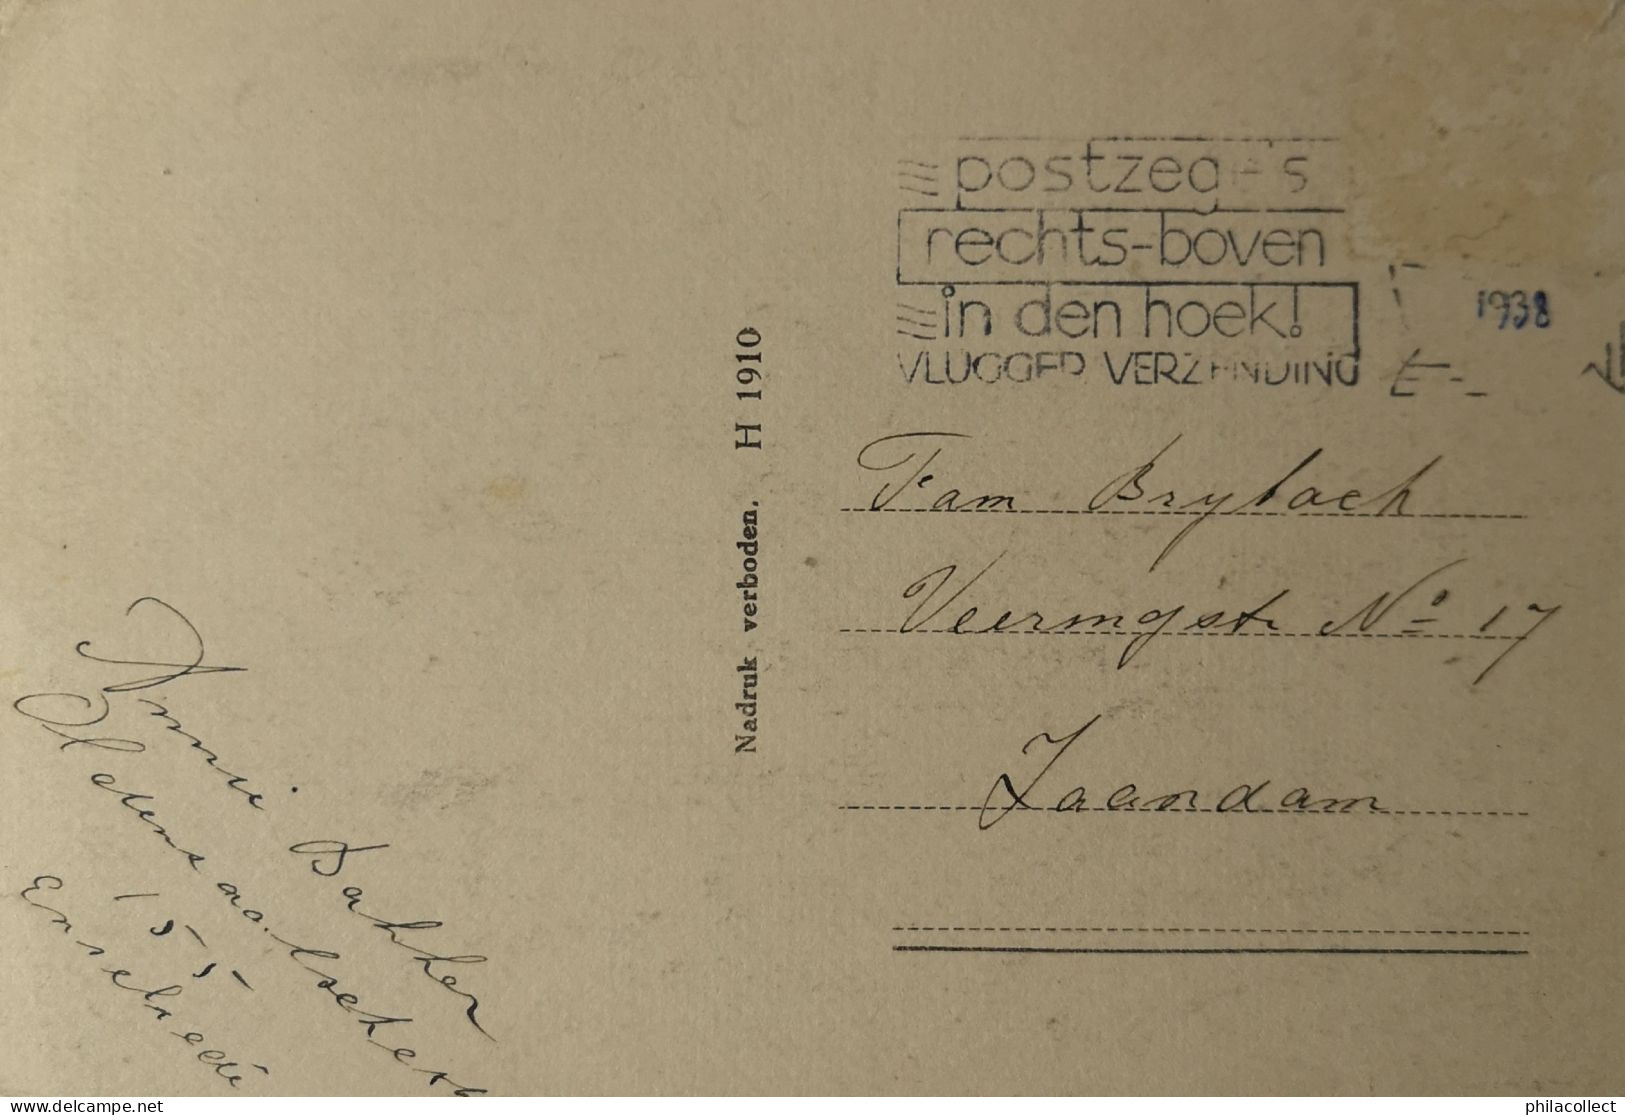 postzegels
rechts-boven
in den hoek!
VLUGGER VERZENDING
1938
Nadruk verboden. H 1910
Fam Bryback
Veeringstr No 17
Zaandam
Annie Bakker
Oldenzaalschestr
155
Enschede
delcampe.net
philacollect